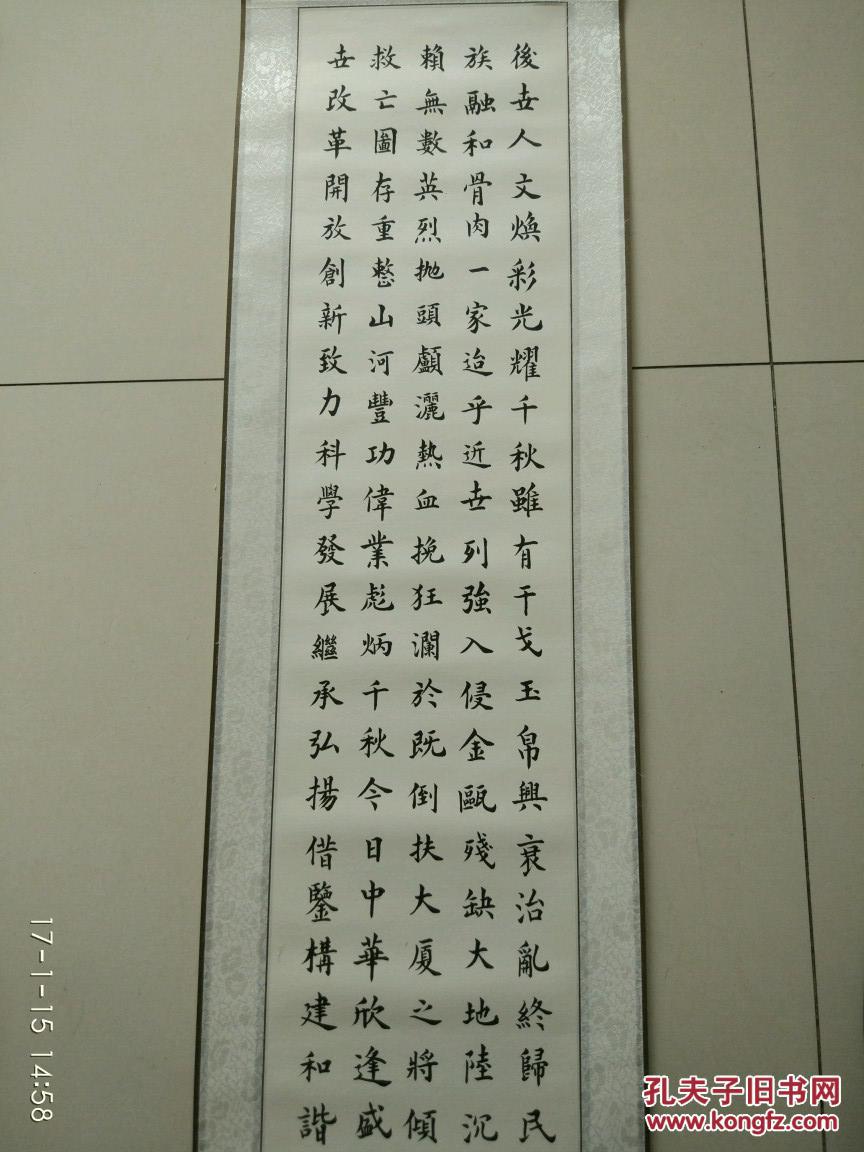 後世人文焕彩光耀千秋雖有干戈玉帛興衰治亂終歸民
族融和骨肉一家迨乎近世列強入侵金甌殘缺大地陸沉
賴無數英烈拋頭顱灑熱血挽狂瀾於既倒扶大厦之將傾
救亡圖存重整山河豐功偉業彪炳千秋今日中華欣逢盛
世改革開放創新致力科學發展繼承弘揚借鑒構建和諧
17-1-15 14:58
孔夫子旧书网
www.kongfz.com